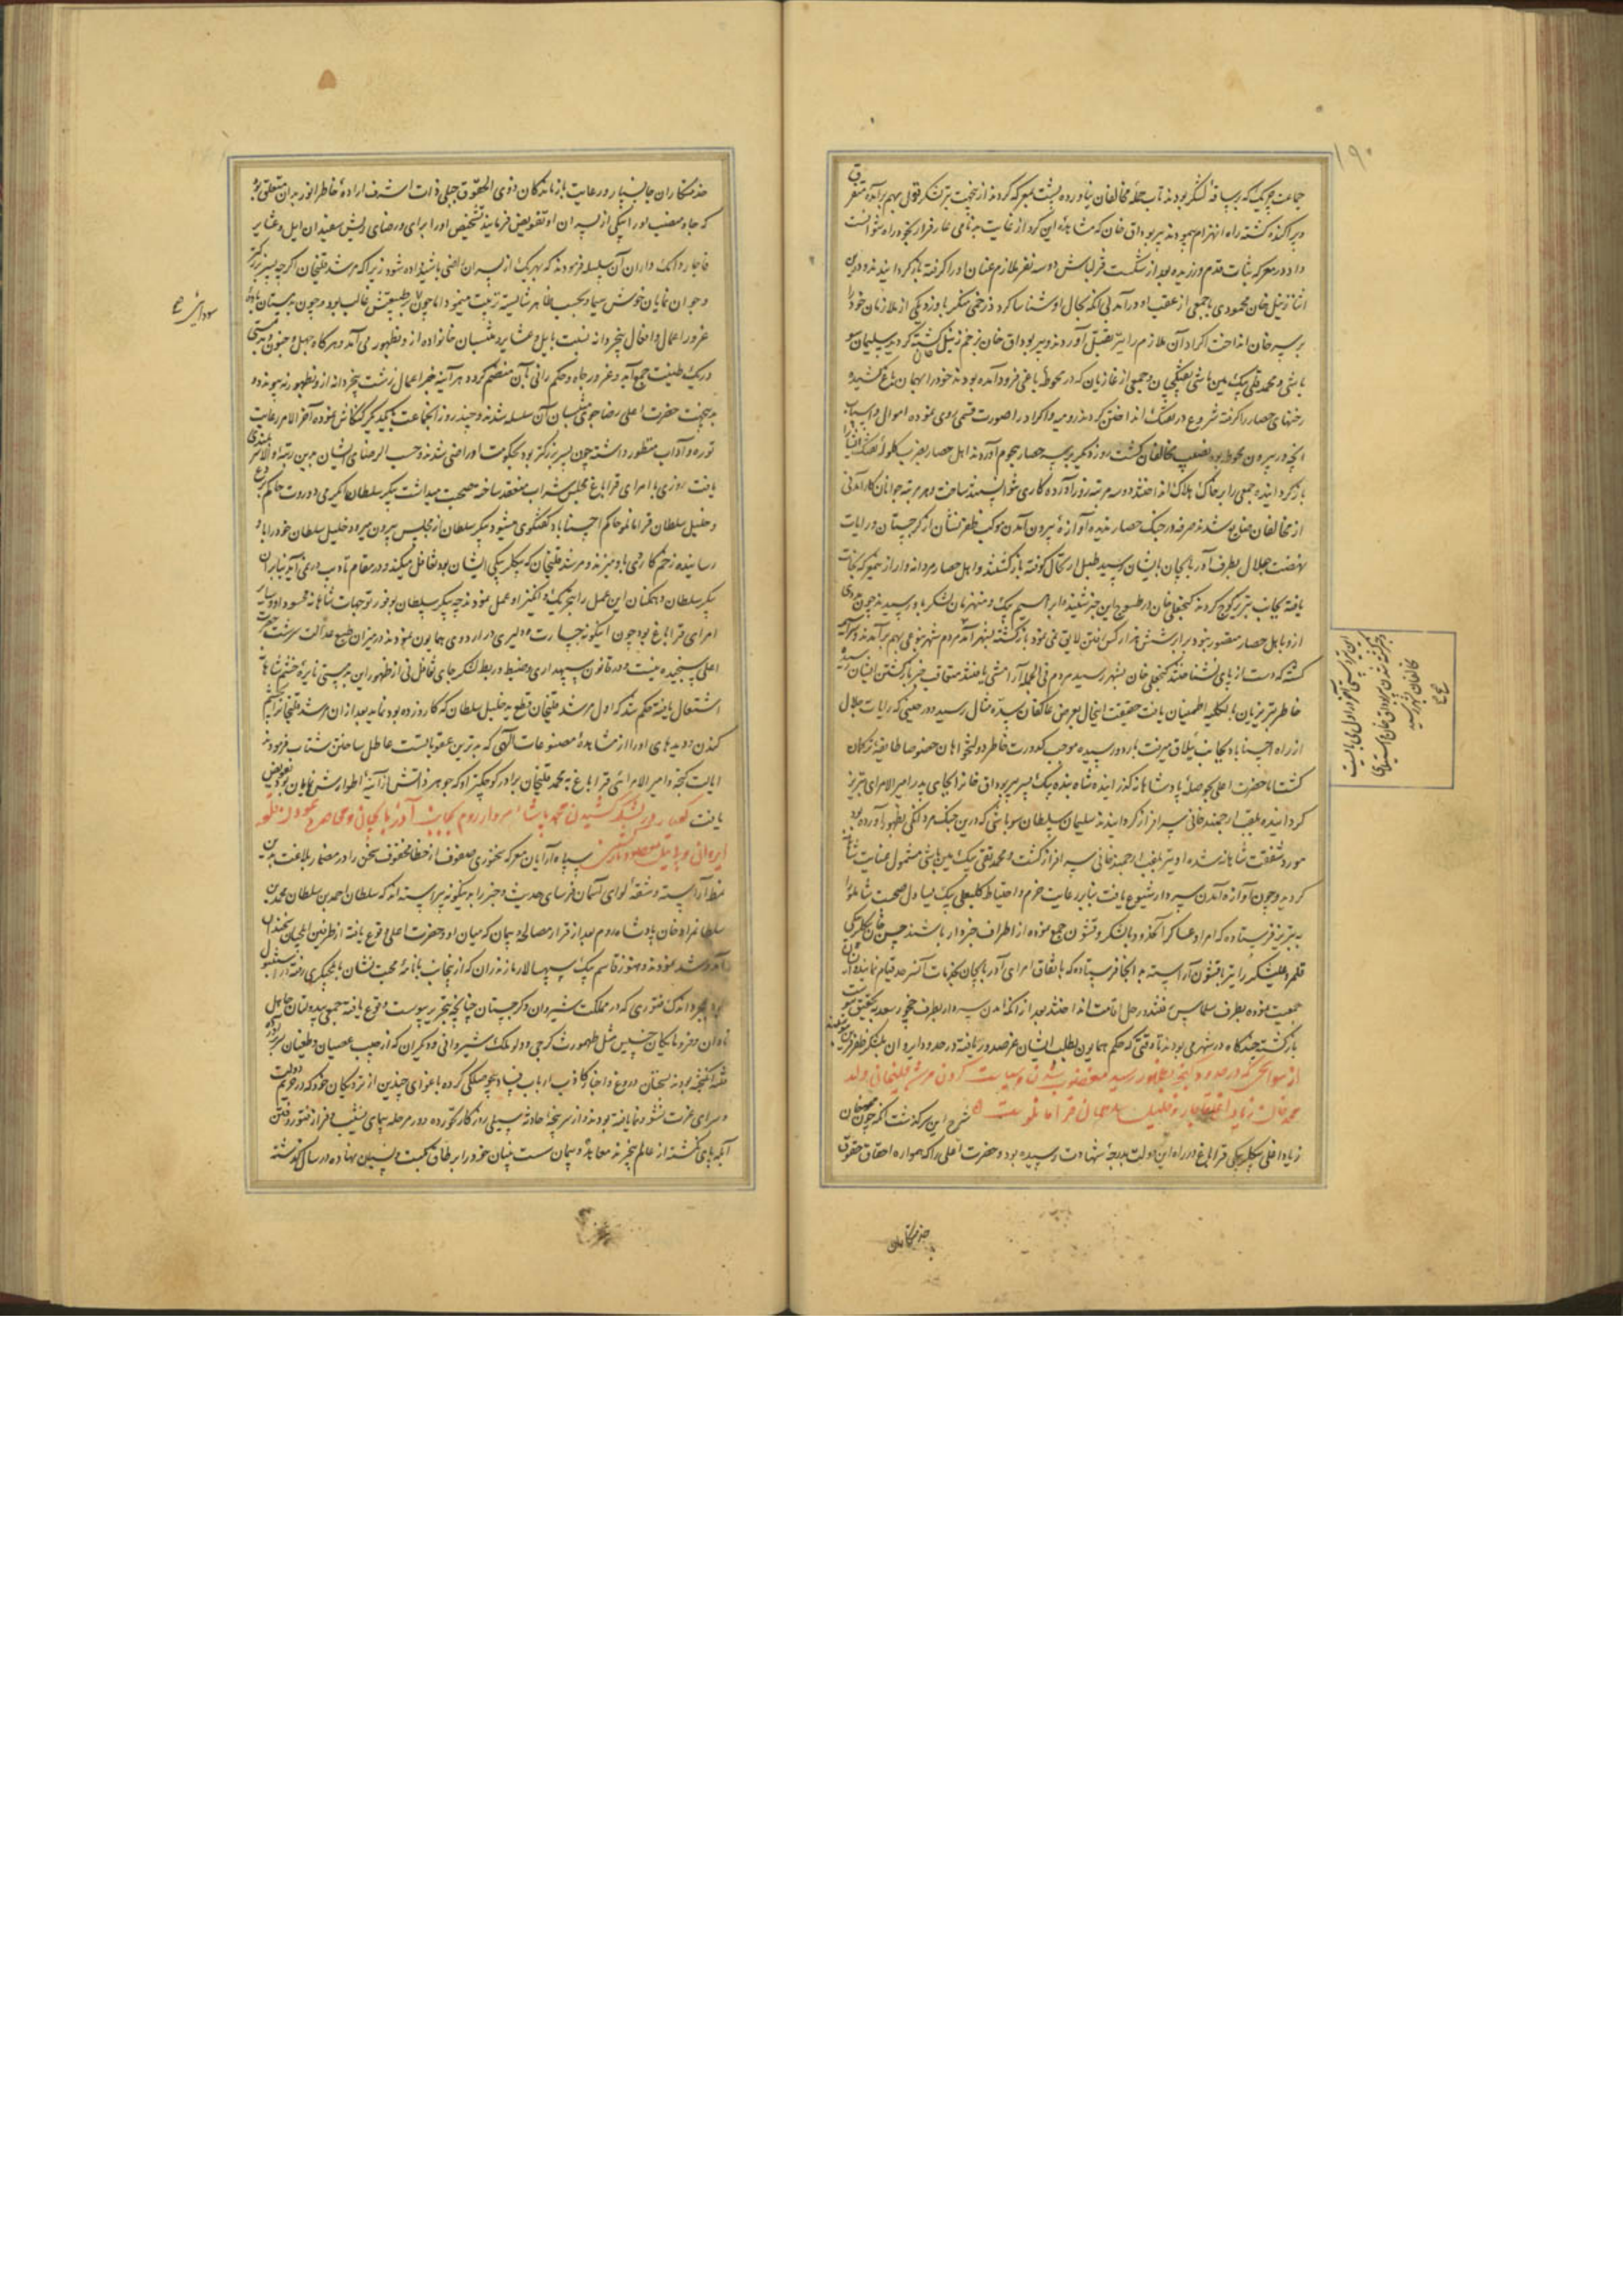 ۱۹۰
جماعت چریک که در ساقهٔ لشکر بودند تاب حملهٔ مخالفان نیاورده پشت بمعرکه کردند از نهیب تیر لشکر قول بهم برآمده متفرق
و پراکنده گشته راه انهزام پیمودند پیربوداق خان که مشاهدهٔ این کرد از غایت بدنامی عار فرار بخود راه نتوانست
داد در معرکه ثبات قدم ورزیده بعد از شکست قزلباش دو سه نفر ملازم عنان او را گرفته بازگردانیدند و درین
اثنا زینل خان محمودی با جمعی از عقب او درآمد بی آنکه بحال او شناسا گردد زخمی منکر باو زد و یکی از ملازمان خود را
بر سر خان انداخت اکراد آن ملازم را نیز بقتل آوردند و پیر بوداق خان بزخم زینل کشته گردید سلیمان سو
باشی و محمد تقی بیک مین باشی تفنگچیان و جمعی از غازیان که در محوطهٔ باغی فرود آمده بودند خود را بهمان باغ کشیده
رخنهای حصار را گرفته شروع در تفنگ انداختن کردند رومیه و اکراد را صورت فتحی روی نموده اموال و اسباب
آنچه در بیرون محوطه بود بغصب مخالفان گشت روز دیگر بر سر حصار هجوم آوردند اهل حصار بضرب گلولهٔ تفنگ ایشانرا
بازگردانیده جمعی را بر خاک هلاک انداختند دو سه مرتبه زور آورده کاری نتوانستند ساخت و هر مرتبه جوانان کارآمدنی
از مخالفان ضایع شد صرفه در جنگ حصار ندیده آوازهٔ بیرون آمدن موکب ظفرنشان از گرجستان و رایات
نهضت جلال بطرف آذربایجان بایشان رسید طبل ارتحال کوفته بازگشتند و اهل حصار مردانه وار از تهلکه نجات
یافته بجانب تبریز کوچ کردند گنجعلی خان در طسوج این خبر شنیده ابراهیم بیک و منهزمان لشکر باو رسیدند چون مددی
ازو باهل حصار مقصور نبود و برابر شش هزار کس رفتن لایق نمی نمود بازگشته بشهر آمد مردم شهر نوعی بهم برآمدند و سراسیمه
گشته که دست از پای نشناختند گنجعلی خان بشهر رسید مردم فی الجمله آرامشی یافتند متعاقب خبر بازگشتن ایشان رسیده
خاطر تبریزیان بالکلیه اطمینان یافت حقیقت اینحال بعرض عاکفان سدهٔ مثال رسید در حینی که رایات جلال
از راه اخسناباد بجانب ییلاق میرفت باردو رسیده موجب کدورت خاطر دولتخواهان خصوصا طایفهٔ ترکمان
گشت اما حضرت اعلی بحوصلهٔ پادشاهانه گذرانیده شاه بنده بیک پسر پیر بوداق خانرا بجای پدر امیرالامرای تبریز
گردانیده بلقب ارجمند خانی سرافراز گردانیدند سلیمان سلطان سوباشی که درین جنگ مردانگی بظهور آورده بود
مورد شفقت شاهانه شده او نیز بلقب ارجمند خانی سرافراز گشت و محمد تقی بیک مین باشی مشمول عنایت شاهانه
گردید و چون آوازهٔ آمدن سردار شیوع یافت بنابر رعایت حزم و احتیاط کلبعلی بیک یساول صحبت شاملو را
به تبریز فرستاده که امرا و عساکر آنحدود با لشکر و قشون جمع نموده از اطراف خبردار باشند حسن خان بیگلربیکی
قلمرو علیشکر را نیز با قشون آراسته به آنجا فرستاده که باتفاق امرای آذربایجان بخدمات آنسرحد قیام نمایند ایشان
جمعیت نموده بطرف سلماس رفتند و رحل اقامت انداختند بعد از آنکه آمدن سردار بطرف نخچور سعد بتحقیق پیوست
بازگشته چندگاه در شهر می بودند تا وقتی که حکم همایون بطلب ایشان عز صدور یافته در حدود ایروان بلشکر ظفر قرین پیوستند
از سوانحی که در حدود گنجه بظهور رسید مغضوب شدن و سیاست کردن مرشد قلیخان ولد
محمد خان زیاد اغلی قاجار و خلیل سلطان قرامانلوست شرح این سرگذشت آنکه چون محمد خان
زیاد اغلی بیگلربیکی قراباغ در راه این دولت بدرجهٔ شهادت رسیده بود و حضرت اعلی را که همواره احقاق حقوق
خدمتکاران
مخالفان تبریز رسید
خدمتکاران جانسپار و رعایت بازماندگان ذوی الحقوق جبلی ذات اشرف ارادهٔ خاطر انور بدان متعلق بود
که جا و منصب او را بیکی از پسران او تفویض فرمایند تشخیص او را برای و رضای ریش سفیدان ایل و عشایر
قاجار و اتکه داران آن سلسله فرمودند که بهر یک از پسران راضی باشند داده شود زیرا که مرشد قلیخان اگر چه پسر بزرگتر
و جوان نمایان خوش سیما و بحسب ظاهر شایسته تربیت مینمود اما چون بر طبیعتش غالب بود و چون بدمستان بادهٔ
غرور اعمال و افعال بیخردانه نسبت بایل و عشایر و منتسبان خانواده ازو بظهور می آمد و هرگاه جهل و جنون و بدمستی
در یک طینت جمع آید و غرور جاه و حکم رانی بآن منضم گردد هر آینه خبر اعمال زشت بیخردانه ازو بظهور نه پیوندد
بدینجهت حضرت اعلی رضاجوی منتسبان آن سلسله شدند و چند روز آنجماعت بیکدیگر کنکاش نموده آخر الامر رعایت
توره و آداب منظور داشته چون پسر بزرگتر بود بحکومت او راضی شدند و حسب الرضای ایشان بدین رتبهٔ والا سربلندی
یافت روزی با امرای قراباغ مجلس شراب منعقد ساخته صحبت میداشت پیکر سلطان ایگرمی دورت حاکم بردع
و خلیل سلطان قرامانلو حاکم اخستاباد گفتگوی میشود پیکر سلطان از مجلس بیرون میرود خلیل سلطان خود را باو
رسانیده زخم کاردی باو میزند و مرشد قلیخان که بیگلربیکی ایشان بود تغافل میکند و در مقام تادیب درنمی آید بنابران
پیکر سلطان و همگنان این عمل را بتحریک و انگیز او حمل نمودند چه پیکر سلطان بوفور توجهات شاهانه محسود او و سایر
امرای قراباغ بود چون اینگونه جسارت و دلیری در اردوی همایون نمودند در میزان طبع عدالت سرشت حضرت
اعلی سنجیده نیست و در قانون سپهداری و ضبط و ربط لشکر جای تغافل نی از ظهور این بدمستی نایرهٔ خشم شاهانه
اشتعال یافته حکم شد که اول مرشد قلیخان قطع ید خلیل سلطان که کارد زده بود نماید بعد از آن مرشد قلیخانرا بجشم
کندن دیدهای او را از مشاهدهٔ مصنوعات الهی که بدترین عقوباتست عاطل ساختن شتاب فرمودند
ایالت گنجه و امیر الامرائی قراباغ به محمد قلیخان برادر کوچکتر او که جوهر دانش از آینهٔ اطوارش نمایان بود تفویض
یافت گفتار در لشکر کشیدن محمد پاشا سردار روم بجانب آذربایجان و محاصره نمودن قلعه
ایروان و بی نیل مقصود بازگشتن سپاه آرایان معرکه سخنوری صفوف از خطا محفوف سخن را در مضمار بلاغت بدین
نمط آراسته و شقهٔ لوای آسمان فرسای حدیث و خبر را بدینگونه پیراسته اند که سلطان احمد بن سلطان محمد بن
سلطان مراد خان پادشاه روم بعد از قرار مصالحه و پیمان که میان او و حضرت اعلی وقوع یافته از طرفین ایلچیان سخندان
آمد و شد نمودند و هنوز قاسم بیک سپهسالار مازندران که از ینجانب با نامهٔ محبت نشان بایلچیگری رفته در استنبول
بود بمجرد اندک فتوری که در مملکت شیروان و گرجستان چنانچه بتحریر پیوست وقوع یافته جمعی بیدولتان جاهل
نادان و فرومایگان خسیس مثل طهمورث گرجی و دلو ملک شیروانی و دیگران که از جیب عصیان و طغیان سر برآورده
فتنه انگیخته بودند بسخنان دروغ و اخبار کاذب ارباب فساد نقض صلحی کرده باغوای چندین از نزدیکان خود که در حریم دولت
و سرای عزت نشو و نما یافته بودند و از سرپنجهٔ حادثه سیلی روزگار نخورده و در مرحله پیمای نشیب و فراز فتور و فتن
آبله پای نگشته از عالم بیخبرند معاهدهٔ و پیمان سست بنیان خود را بر طاق نسیان نهاده در سال گذشته